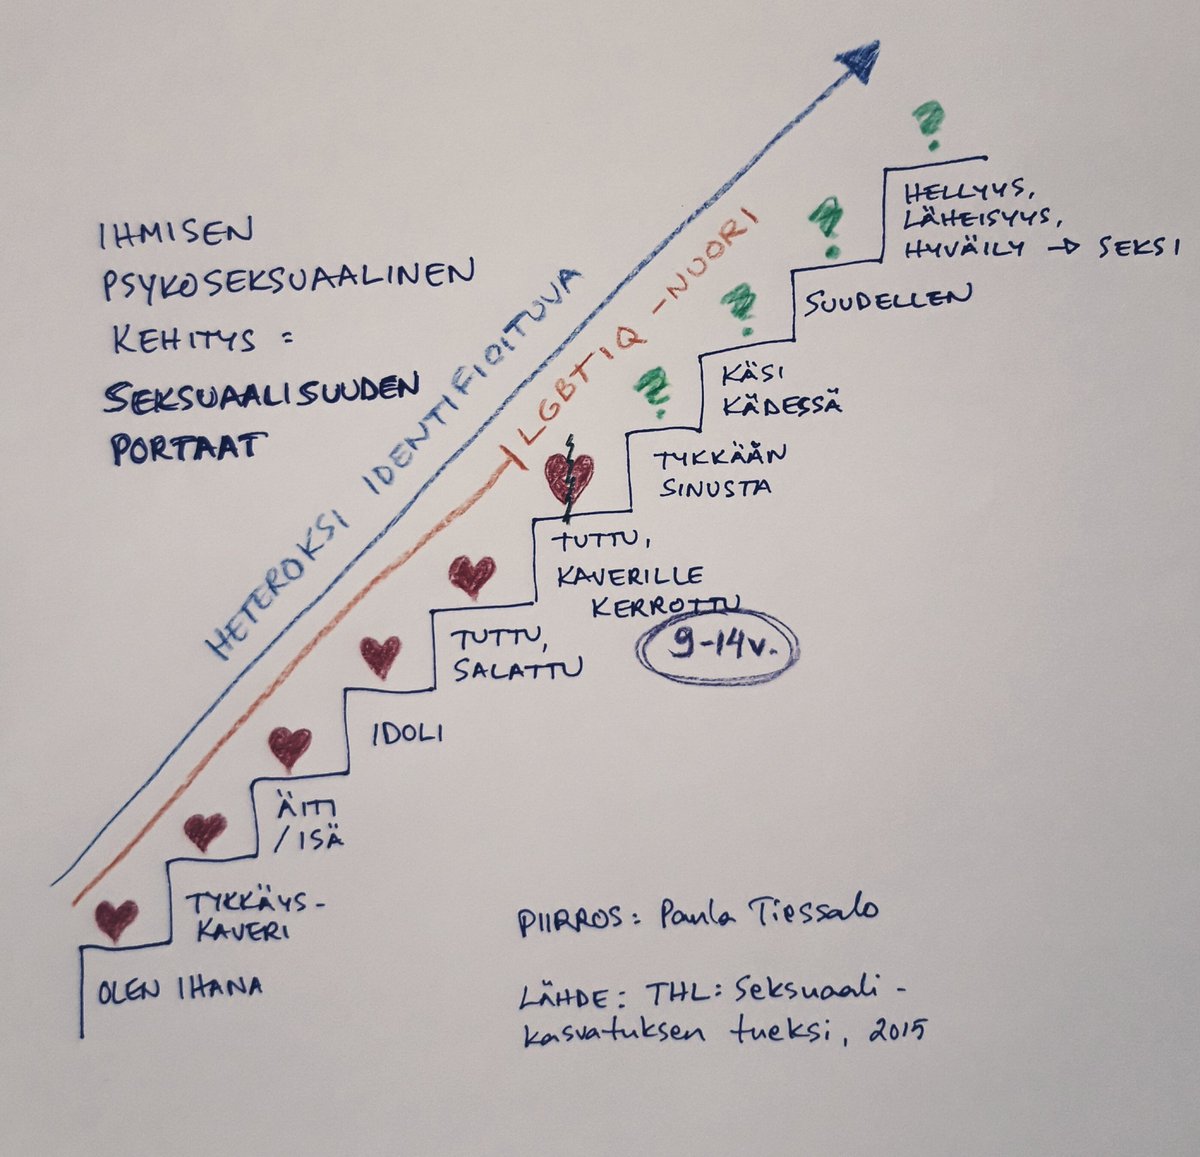 IHMISEN
PSYKOSEKSUAALINEN
KEHITYS =
SEKSUAALISUUDEN
PORTAAT
HETEROKSI IDENTIFIOITUVA
LGBTIQ-NUORI
?
HELLYYS,
LÄHEISYYS,
HYVÄILY → SEKSI
?
SUUDELLEN
?
KÄSI
KÄDESSÄ
?
TYKKÄÄN
SINUSTA
TUTTU,
KAVERILLE
KERROTTU
9-14v.
TUTTU,
SALATTU
IDOLI
ÄITI
/ISÄ
TYKKÄYS-
KAVERI
OLEN IHANA
PIIRROS: Paula Tiessalo
LÄHDE: THL: Seksuaali-
kasvatuksen tueksi, 2015